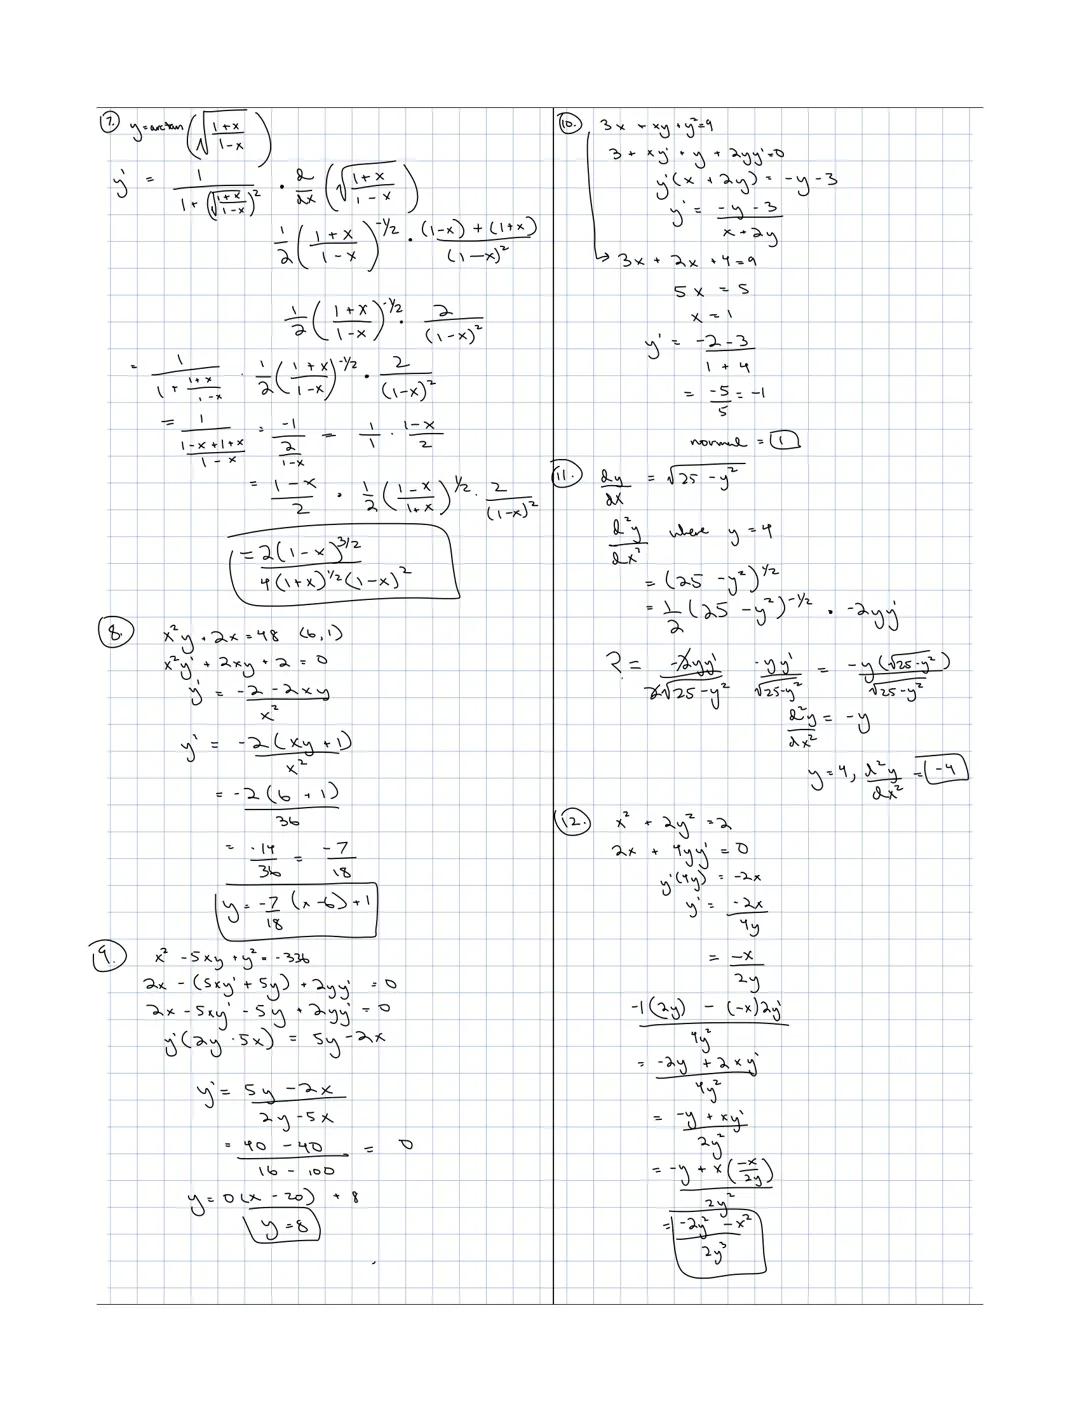 7. y = arctan(√((1+x)/(1-x)))
y' = 1/(1+(√((1+x)/(1-x)))²) · d/dx (√((1+x)/(1-x)))
1/2 ((1+x)/(1-x))^(-1/2) · ((1-x)+(1+x))/(1-x)²
1/2 ((1+x)/(1-x))^(-1/2) · 2/(1-x)²
= 1/(1+(1+x)/(1-x)) · 1/2 ((1+x)/(1-x))^(-1/2) · 2/(1-x)²
= 1/((1-x+1+x)/(1-x)) = -1/(2/(1-x)) = 1/1 · (1-x)/2
= (1-x)/2 · 1/2 ((1-x)/(1+x))^(1/2) · 2/(1-x)²
= 2(1-x)^(3/2) / (4(1+x)^(1/2)(1-x)²)
8. x²y + 2x = 48 (6,1)
x²y' + 2xy + 2 = 0
y' = (-2-2xy)/x²
y' = -2(xy+1)/x²
= -2(6+1)/36
= -14/36 = -7/18
y = -7/18 (x-6)+1
9. x² - 5xy + y² = -336
2x - (5xy' + 5y) + 2yy' = 0
2x - 5xy' - 5y + 2yy' = 0
y'(2y - 5x) = 5y - 2x
y' = (5y-2x)/(2y-5x)
= (40-40)/(16-100) = 0
y = 0(x-20) + 8
y = 8
10. 3x + xy + y² = 9
3 + xy' + y + 2yy' = 0
y'(x + 2y) = -y - 3
y' = (-y-3)/(x+2y)
→ 3x + 2x + 4 = 9
5x = 5
x = 1
y' = (-2-3)/(1+4)
= -5/5 = -1
normal = 1
11. dy/dx = √(25-y²)
d²y/dx² where y = 4
= (25-y²)^(1/2)
= 1/2 (25-y²)^(-1/2) · -2yy'
? = -2yy'/(2√(25-y²)) -yy'/√(25-y²) = -y(√(25-y²))/√(25-y²)
d²y/dx² = -y
y = 4, d²y/dx² = -4
12. x² + 2y² = 2
2x + 4yy' = 0
y'(4y) = -2x
y' = -2x/4y
= -x/2y
(-1(2y) - (-x)2y')/4y²
= (-2y + 2xy')/4y²
= (-y + xy')/2y²
= (-y + x(-x/2y))/2y²
= (-2y² - x²)/2y³